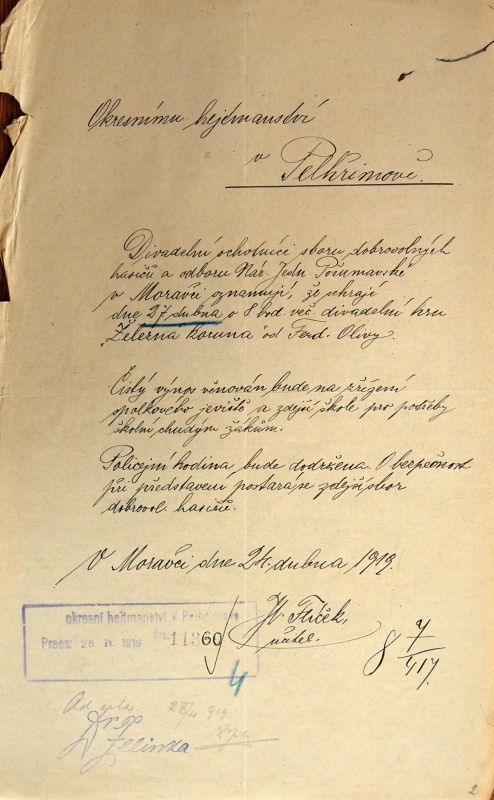 Okresnímu hejtmanství
v Pelhřimově.
Divadelní ochotníci sboru dobrovolných
hasičů a odboru Nár. Jedn. Pošumavské
v Moravči oznamují, že sehrají
dne 27. dubna o 8 hod. več. divadelní hru
Želerna koruna od Ferd. Olivy.
Čistý výnos věnován bude na zřízení
spolkového jeviště a zdejší škole pro potřeby
školní chudým žákům.
Policejní hodina bude dodržena. O bezpečnost
při představení postará se zdejší sbor
dobrovol. hasičů.
V Moravči dne 24. dubna 1919.
okresní hejtmanství v Pelhřimově
Praes: 26 IV. 1919 11360
učitel.
4
8 7/417
28/4 919
Jelinka
2